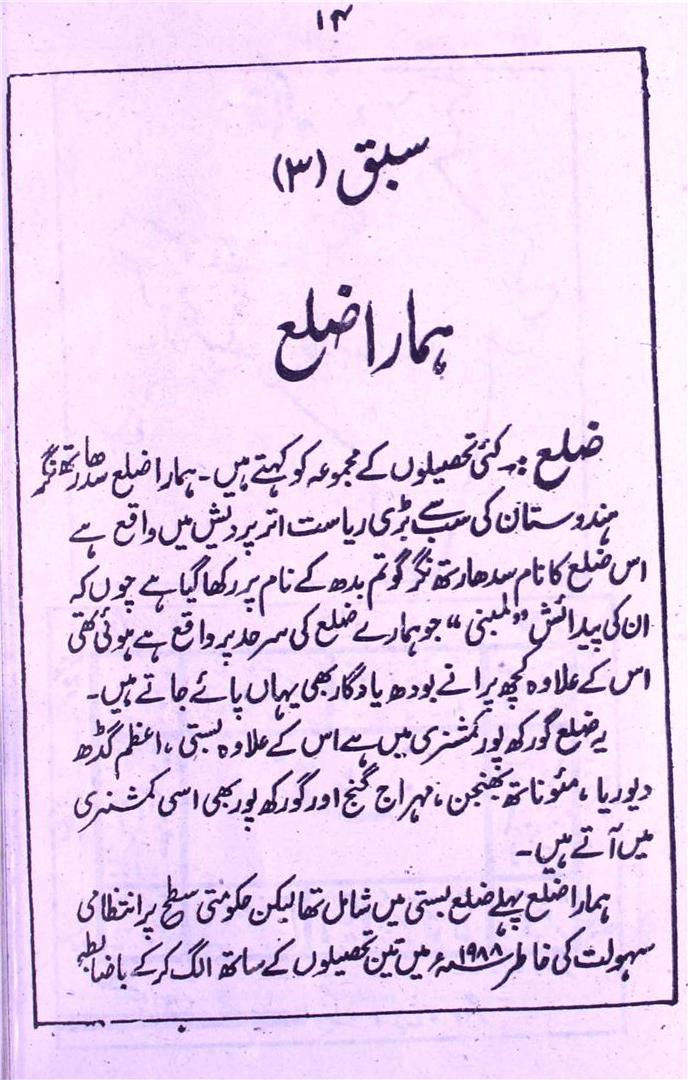 ۱۴
سبق (۳)
ہمارا ضلع
ضلع :۔ کئی تحصیلوں کے مجموعہ کو کہتے ہیں۔ ہمارا ضلع سدھارتھ نگر
ہندوستان کی سب سے بڑی ریاست اتر پردیش میں واقع ہے
اس ضلع کا نام سدھارتھ نگر گوتم بدھ کے نام پر رکھا گیا ہے چوں کہ
ان کی پیدائش ”لمبنی“ جو ہمارے ضلع کی سرحد پر واقع ہے ہوئی تھی
اس کے علاوہ کچھ پرانے بودھ یادگار بھی یہاں پائے جاتے ہیں۔
یہ ضلع گورکھ پور کمشنری میں ہے اس کے علاوہ بستی، اعظم گڈھ
دیوریا، مئوناتھ بھنجن، مہراج گنج اور گورکھ پور بھی اسی کمشنری
میں آتے ہیں۔
ہمارا ضلع پہلے ضلع بستی میں شامل تھا لیکن حکومتی سطح پر انتظامی
سہولت کی خاطر ۱۹۸۸ء میں تین تحصیلوں کے ساتھ الگ کر کے باضابطہ